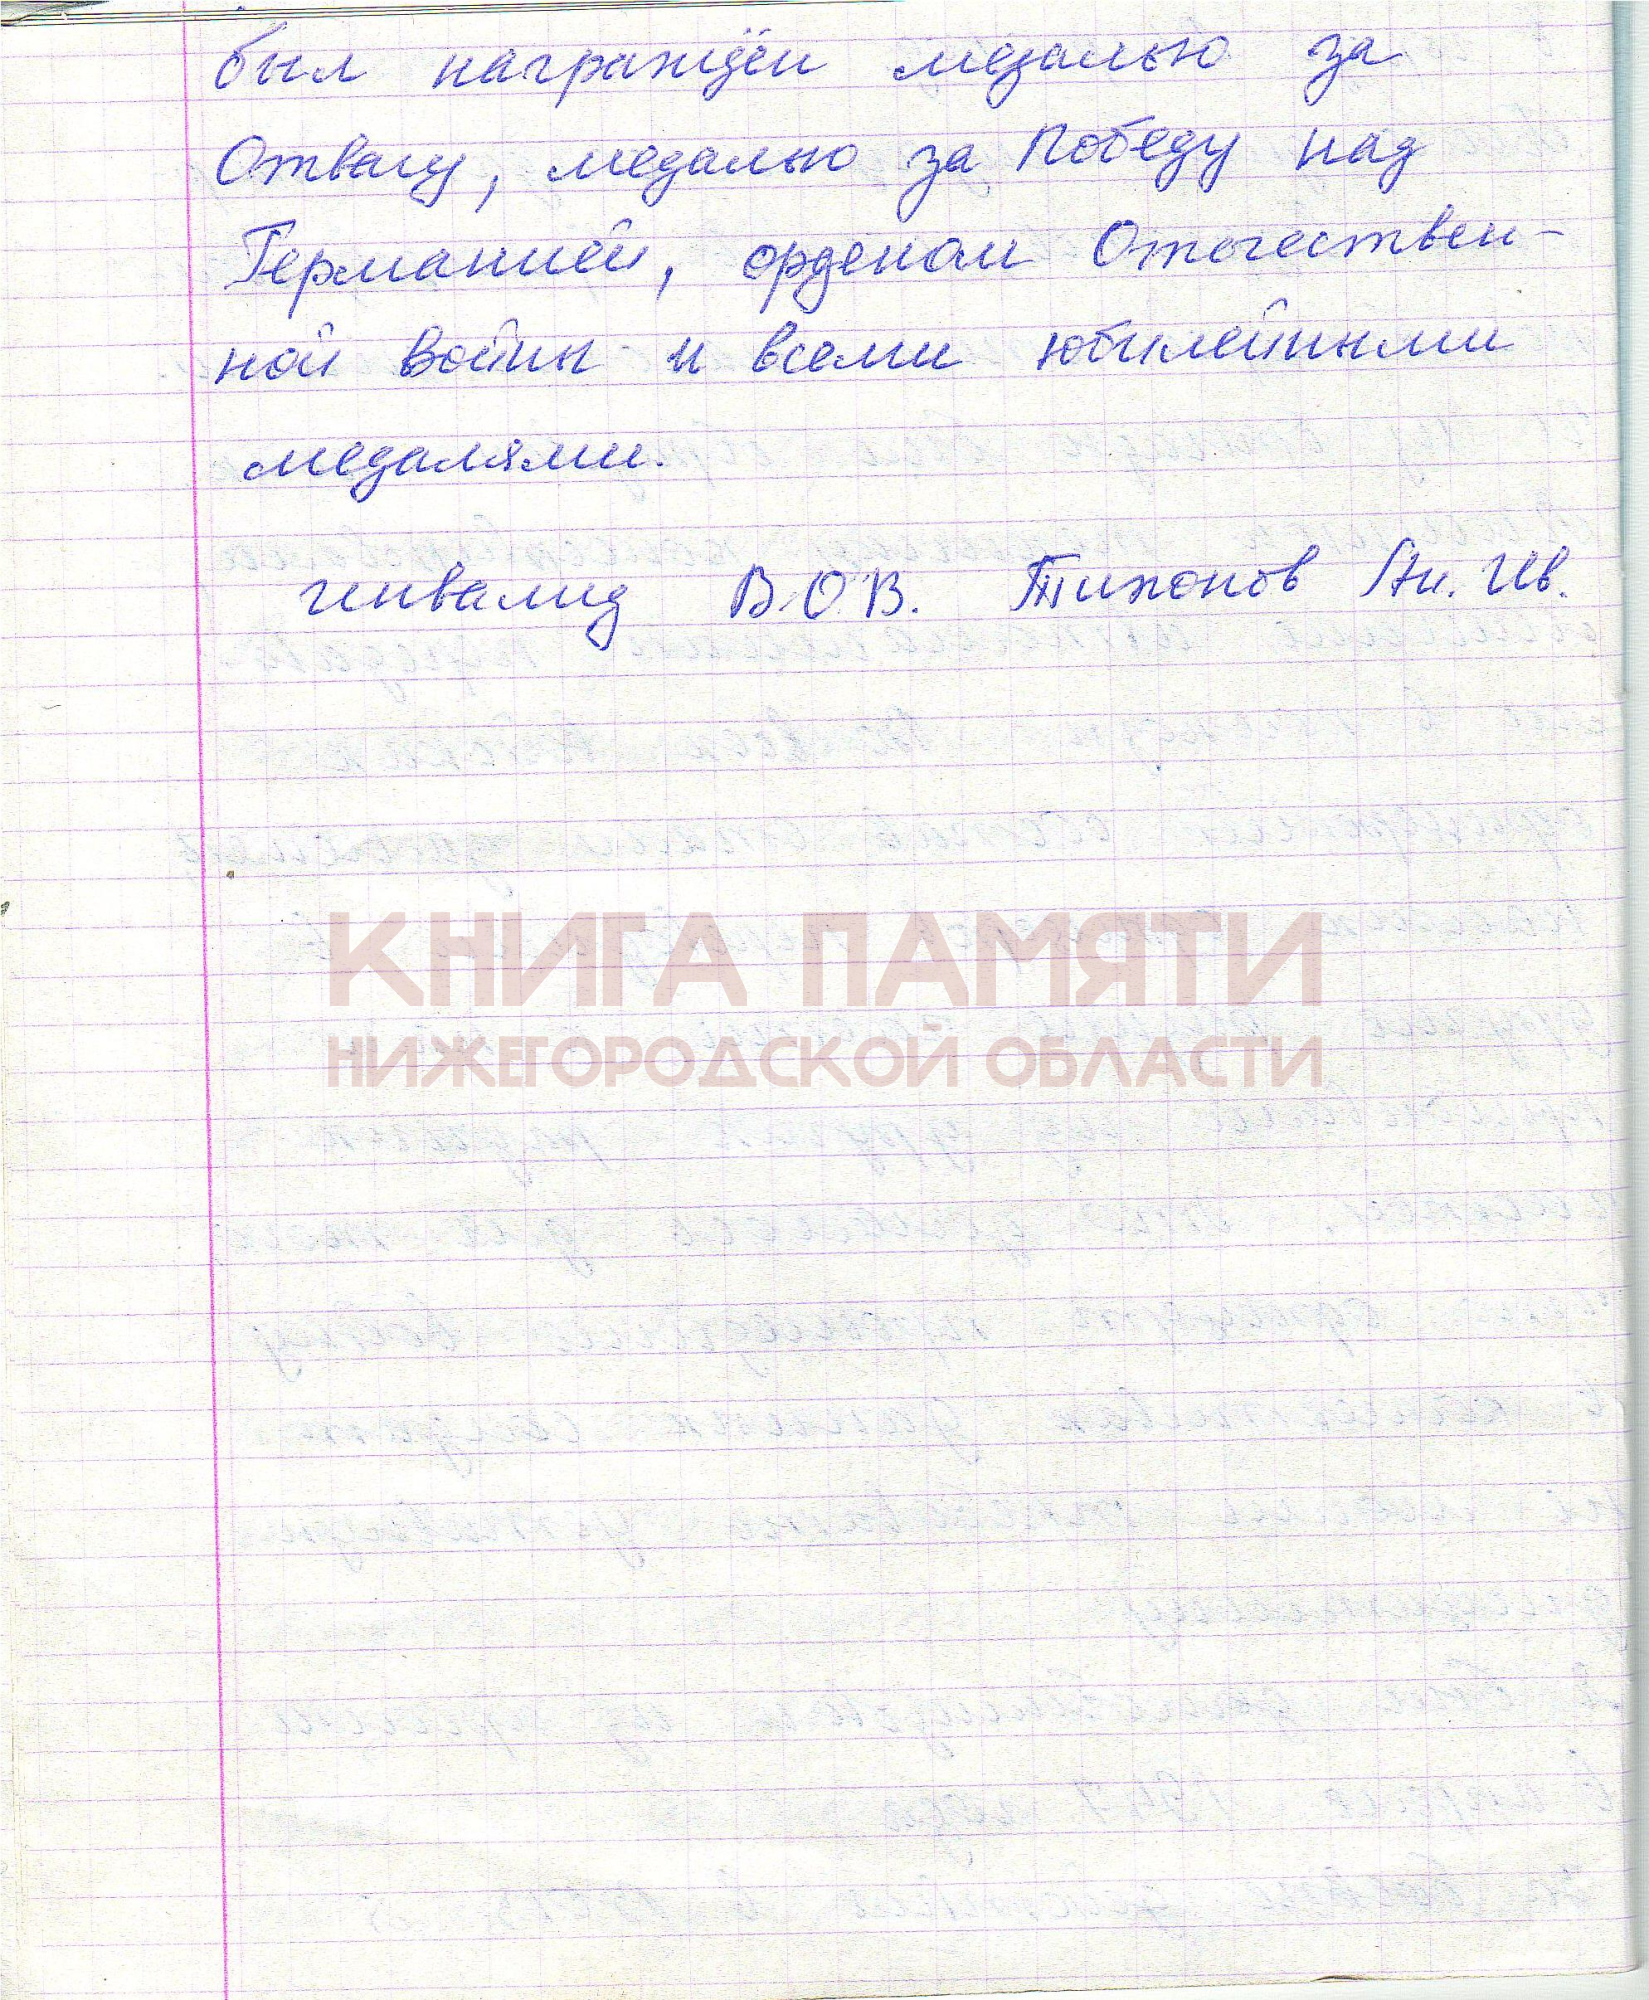 был награждён медалью за
Отвагу, медалью за Победу над
Германией, орденом Отечествен-
ной Войны и всеми юбилейными
медалями.
инвалид В.О.В. Тихонов Ан. Ив.
КНИГА ПАМЯТИ
НИЖЕГОРОДСКОЙ ОБЛАСТИ